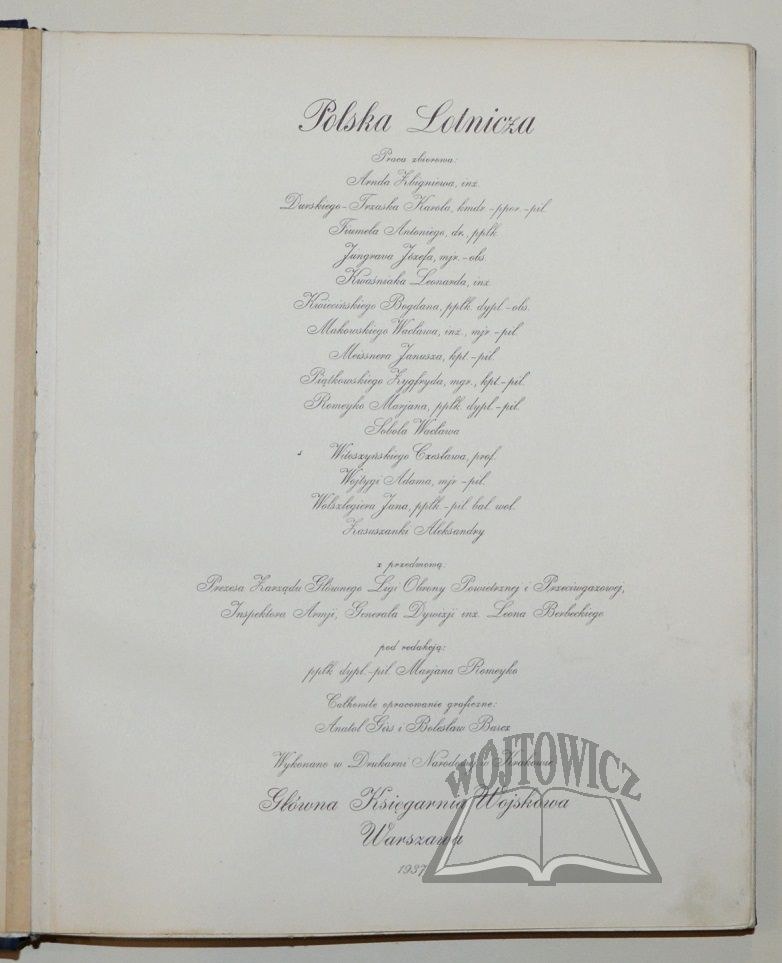 Polska Lotnicza
Praca zbiorowa:
Arnda Zbigniewa, inż.
Durskiego-Trzaska Karola, kmdr.-ppor.-pil.
Fiumela Antoniego, dr., ppłk.
Jungrava Józefa, mjr.-obs.
Kwaśniaka Leonarda, inż.
Kwiecińskiego Bogdana, ppłk. dypl.-obs.
Makowskiego Wacława, inż., mjr.-pil.
Meissnera Janusza, kpt.-pil.
Piątkowskiego Zygfryda, mgr., kpt.-pil.
Romeyko Marjana, ppłk. dypl.-pil.
Sobola Wacława
Witoszyńskiego Czesława, prof.
Wojtygi Adama, mjr.-pil.
Wolszlegiera Jana, ppłk.-pil. bal. wol.
Zasuszanki Aleksandry
z przedmową:
Prezesa Zarządu Głównego Ligi Obrony Powietrznej i Przeciwgazowej,
Inspektora Armji, Generała Dywizji inż. Leona Berbeckiego
pod redakcją:
ppłk. dypl.-pil. Marjana Romeyko
Całkowite opracowanie graficzne:
Anatol Girs i Bolesław Barcz
Wykonano w Drukarni Narodowej w Krakowie
Główna Księgarnia Wojskowa
Warszawa
1937
WÓJTOWICZ